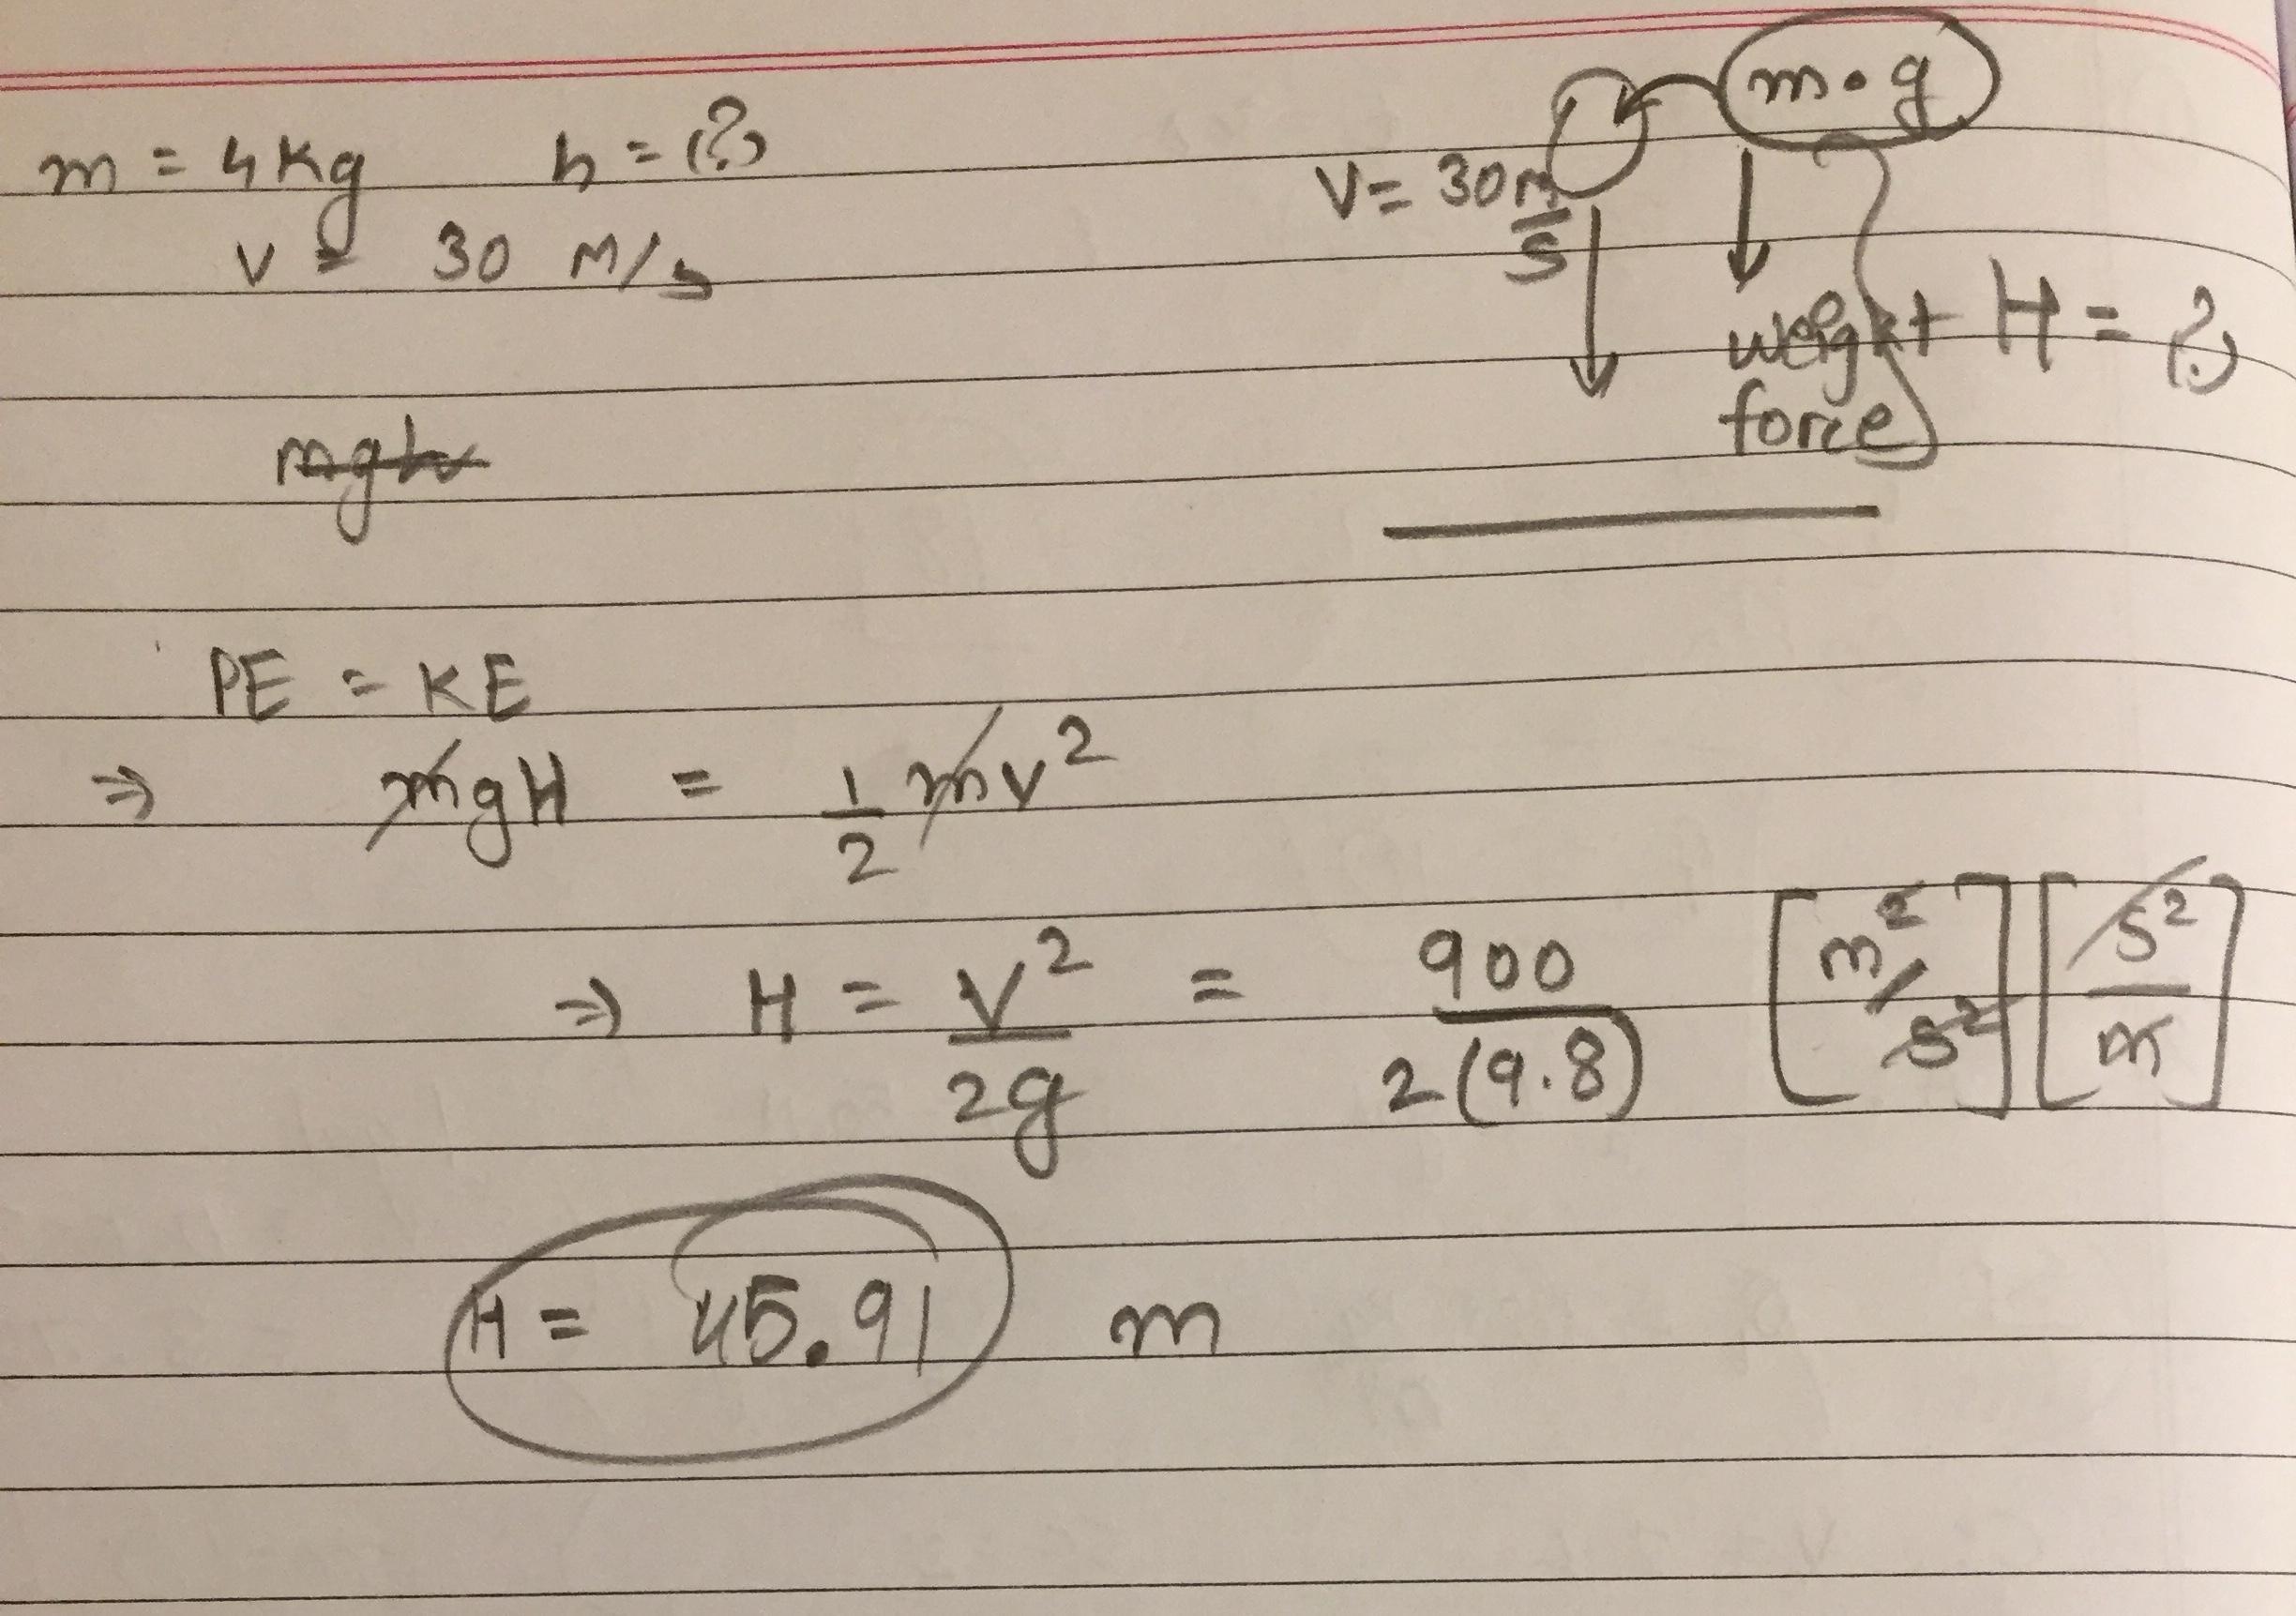 m = 4Kg h = (?)
v = 30 M/s
m.g
V = 30 M/S
weight force
H = (?)
mgh
PE = KE
⇒ mgH = 1/2 mv²
⇒ H = V²/2g = 900/2(9.8) [m²/s²] [s²/m]
H = 45.91 m